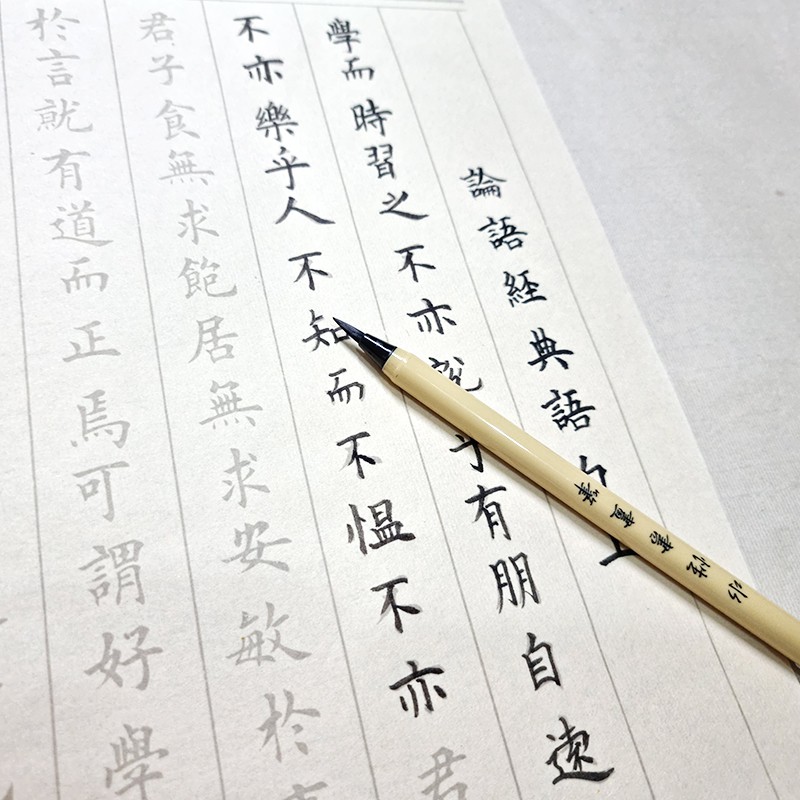 論語經典語
學而時習之不亦說乎有朋自遠
不亦樂乎人不知而不愠不亦君
君子食無求飽居無求安敏於
於言就有道而正焉可謂好學